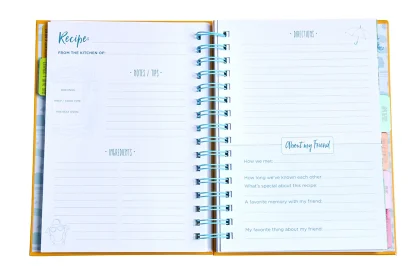 Recipe:
FROM THE KITCHEN OF:
· NOTES / TIPS ·
· INGREDIENTS ·
· DIRECTIONS ·
About my Friend
How we met:
How long we've known each other:
What's special about this recipe:
A favorite memory with my friend:
My favorite thing about my friend: